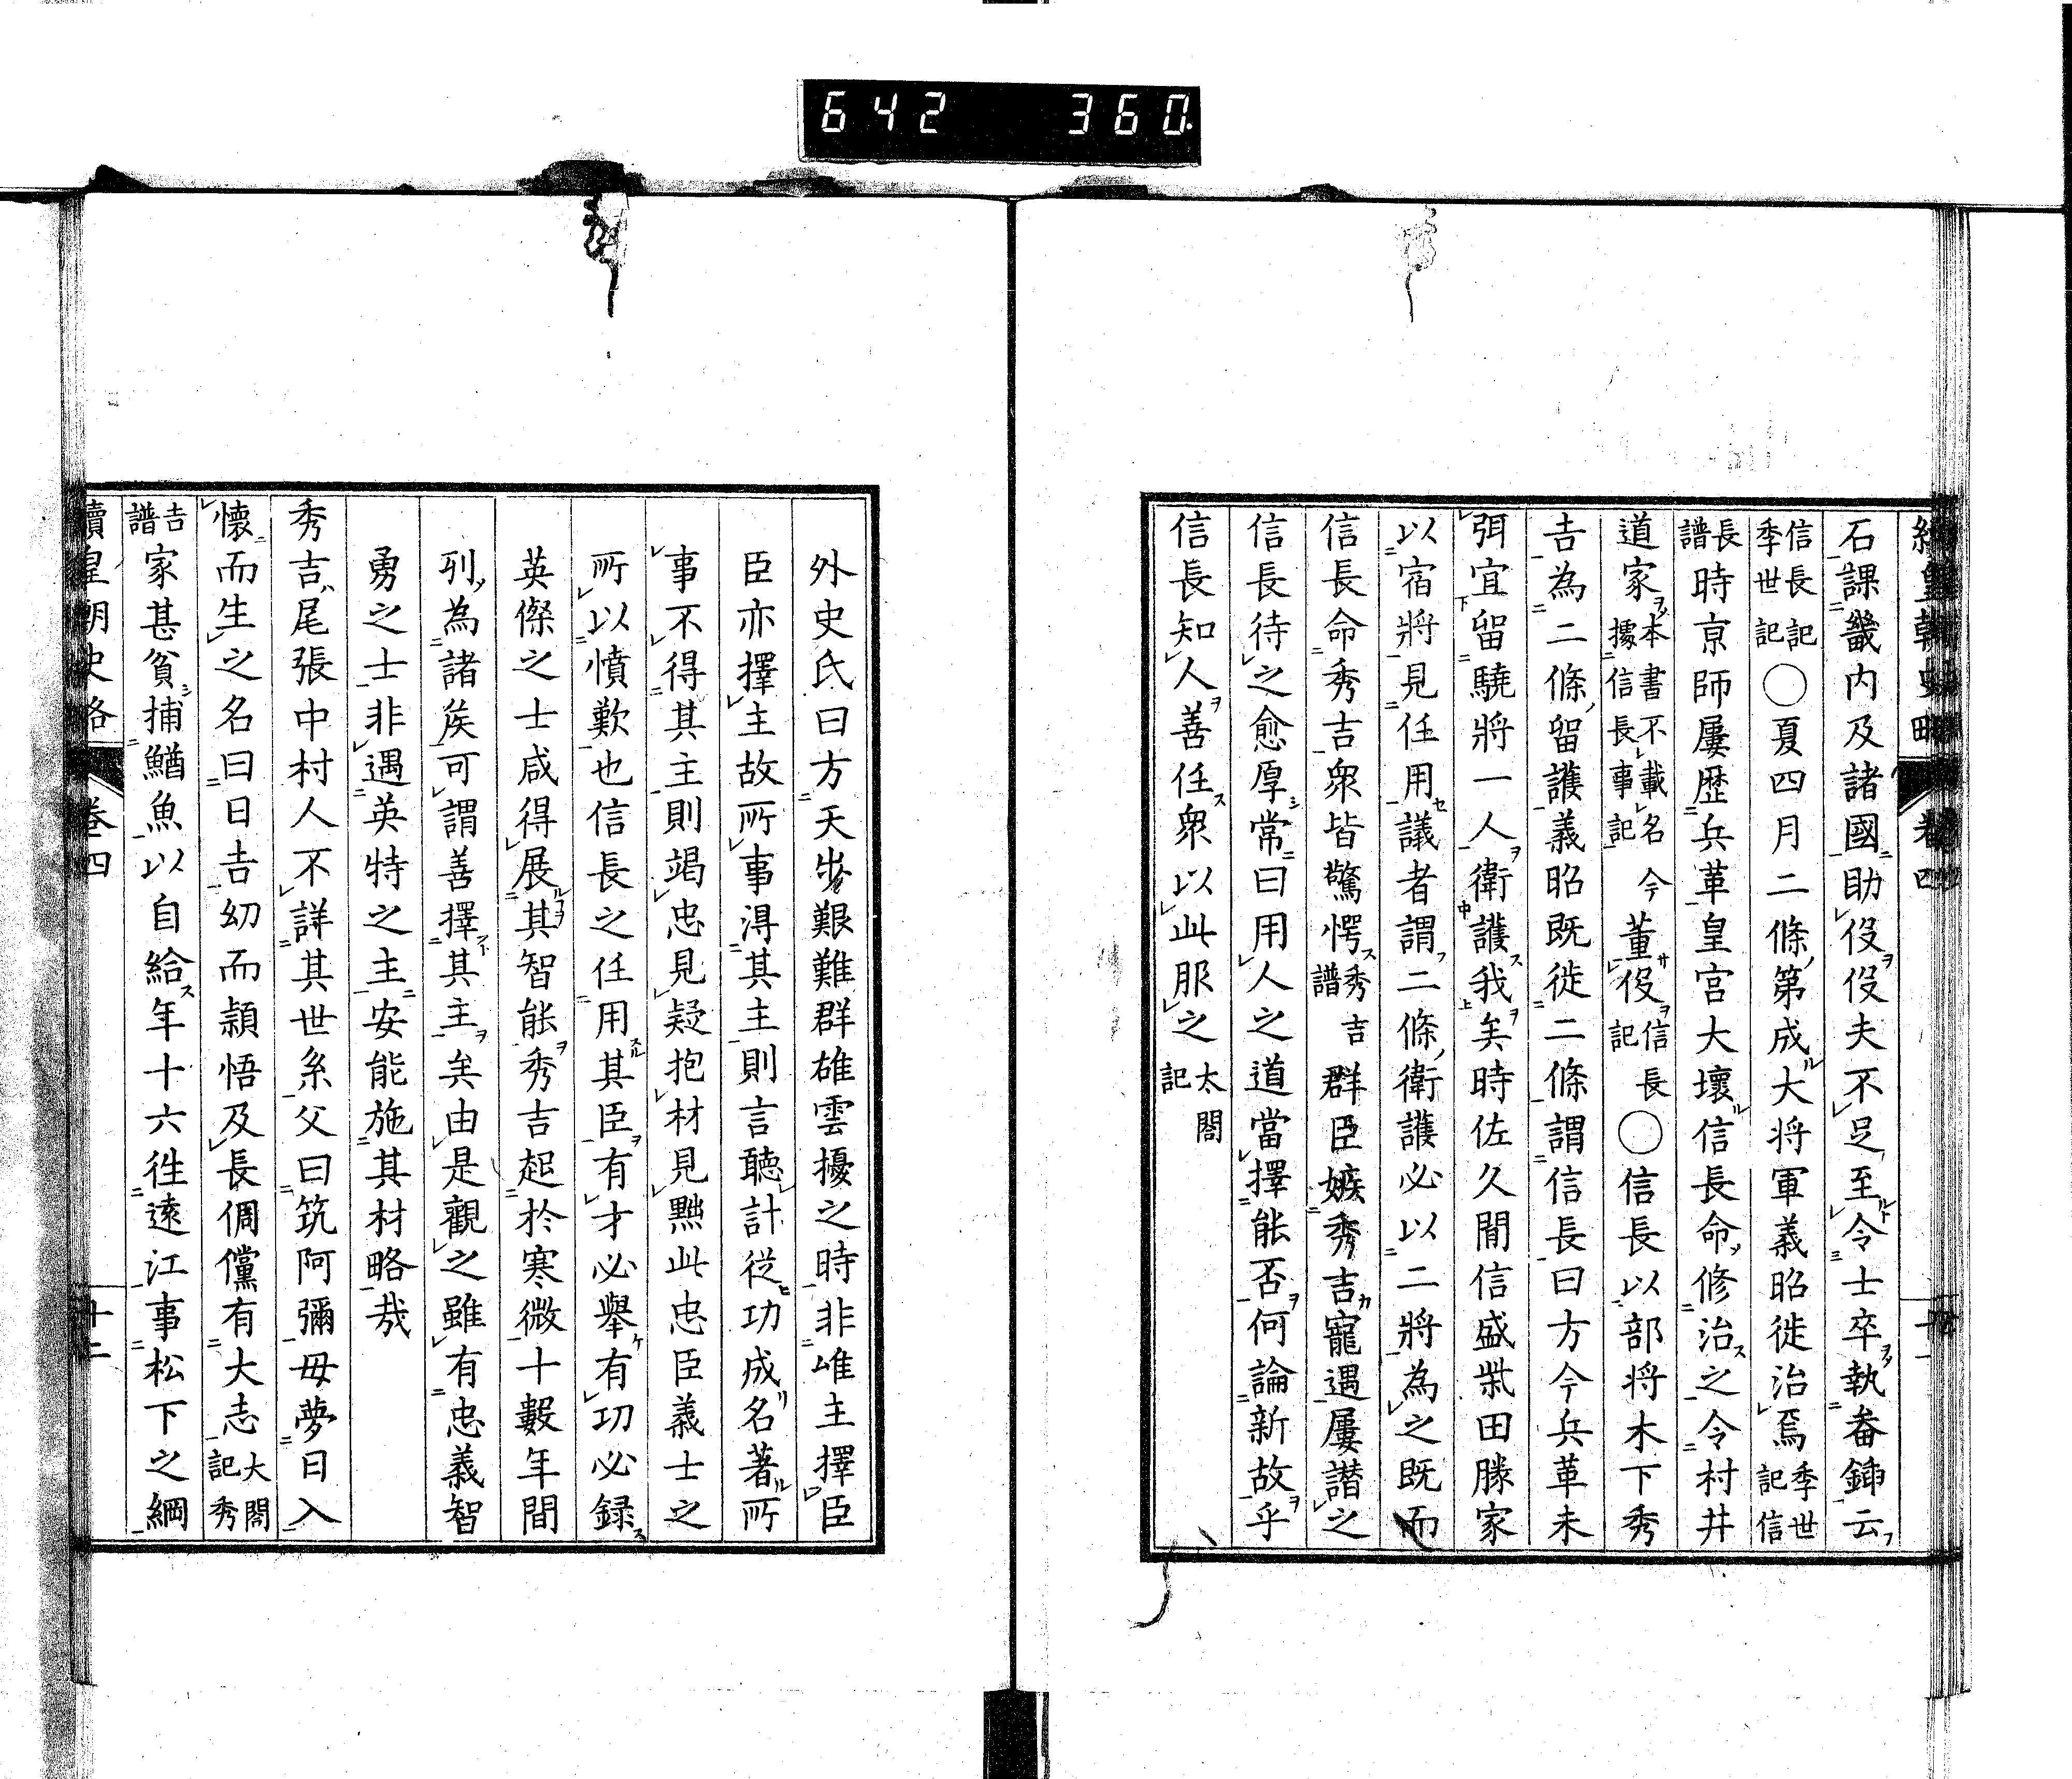 642 360
續皇朝史略 卷四 十一
石課畿内及諸國助役役夫不足至令士卒執畚鍤云
信長記季世記〇夏四月二條第成大将軍義昭徙治焉季世記信
長譜時京師屢歴兵革皇宮大壞信長命修治之令村井
道家本書不載名據信長事記今董役信長記〇信長以部将木下秀
吉為二條留護義昭既徙二條謂信長曰方今兵革未
弭宜留驍將一人衛護我矣時佐久間信盛柴田勝家
以宿將見任用議者謂二條衛護必以二將為之既而
信長命秀吉衆皆驚愕秀吉譜群臣嫉秀吉寵遇屢譖之
信長待之愈厚常曰用人之道當擇能否何論新故乎
信長知人善任衆以此服之太閤記
外史氏曰方天歩艱難群雄雲擾之時非唯主擇臣
臣亦擇主故所事得其主則言聽計從功成名著所
事不得其主則竭忠見疑抱材見黜此忠臣義士之
所以憤歎也信長之任用其臣有才必舉有功必録
英傑之士咸得展其智能秀吉起於寒微十數年間
列為諸侯可謂善擇其主矣由是觀之雖有忠義智
勇之士非遇英特之主安能施其材略哉
秀吉尾張中村人不詳其世系父曰筑阿彌母夢日入
懷而生之名曰日吉幼而穎悟及長倜儻有大志太閤記秀
吉譜家甚貧捕鰌魚以自給年十六往遠江事松下之綱
續皇朝史略 卷四 十二